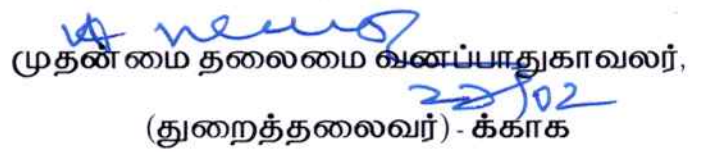 முதன்மை தலைமை வனப்பாதுகாவலர்,
22/02
(துறைத்தலைவர்) - க்காக